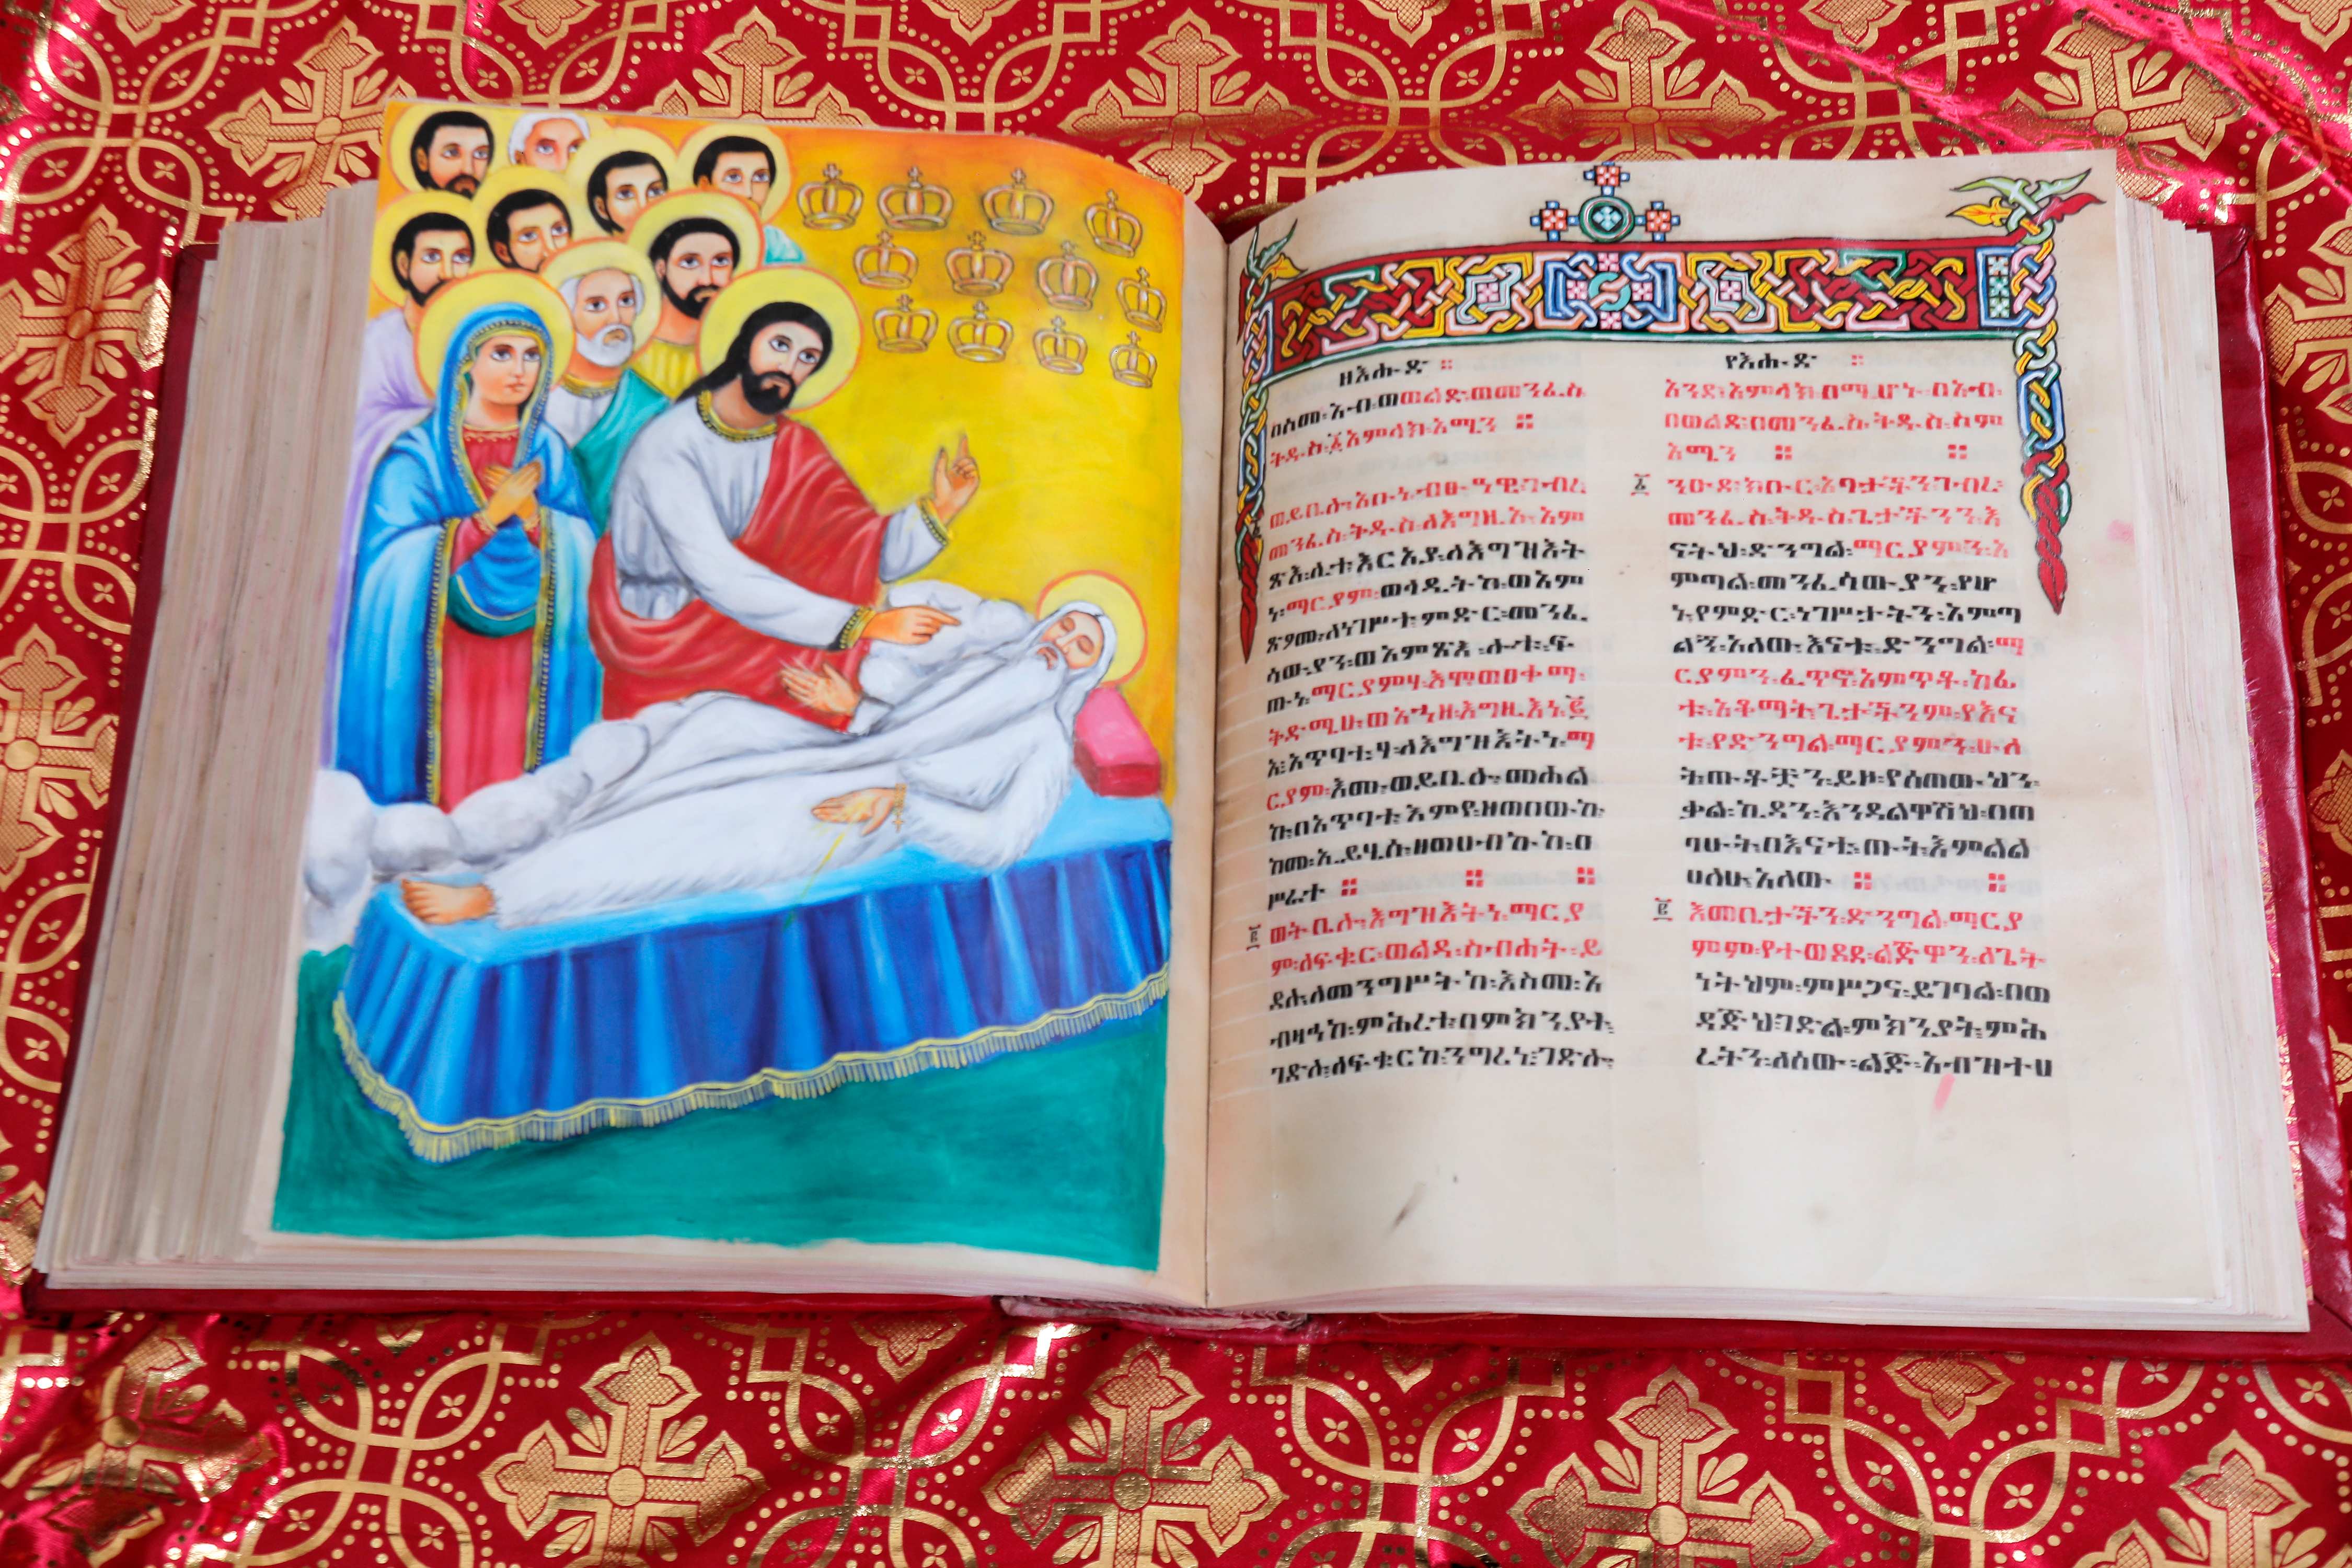 ዘእሑድ ፡፡
በስመ፡አብ፡ወወልድ፡ወመንፈስ
ቅዱስ፡፩አምላክ፡አሜን ፡፡
ወይቤሉ፡አቡነ፡ብፁዓዊ፡ገብረ
መንፈስ፡ቅዱስ፡ለእግዚአ፡እም
ጽእ፡ሊተ፡እርአያ፡ለእግዝእት
ነ፡ማርያም፡ወላዲትከ፡ወእም
ጽዖሙ፡ለነገሥተ፡ምድር፡መንፈ
ሳውያን፡ወአምጽእ፡ሎቱ፡ፍ
ጡነ፡ማርያምሃ፡እሞ፡ወፀቀ፡ማ
ኅዘ፡እግዚእነ፡፪
አ፡አጥባቲሃ፡ለእግዝእትነ፡ማ
ርያም፡እሙ፡ወይቤሎ፡መሐል
ኩ፡በአጥባተ፡እምየ፡ዘጠበው
ከመ፡ኢይሄሱ፡ዘወሀብኩከ፡በ
ሥረተ ፡፡ ፡፡ ፡፡
፪ ወትቤሎ፡እግዝእትነ፡ማርያ
ም፡ለፍቁር፡ወልዳ፡ስብሐት፡ይ
ደሉ፡ለመንግሥትከ፡እስመ፡አ
ብዛኅከ፡ምሕረተ፡በምክንያተ፡
ገድሉ፡ለፍቁርከ፡ንግረኒ፡ገድሎ፡
የእሑድ ፡፡
አንድ፡አምላክ፡በሚሆኑ፡በአብ፡
በወልድ፡በመንፈስ፡ቅዱስ፡ስም
አሜን ፡፡ ፡፡
፩ ንዑድ፡ክቡር፡አባታችን፡ገብረ፡
መንፈስ፡ቅዱስ፡ጌታችንን፡እ
ናትህ፡ድንግል፡ማርያምን፡አ
ምጣል፡መንፈሳውያን፡የሆ
ኑ፡የምድር፡ነገሥታትን፡አምጣ
ልኝ፡አለው፡እናቱ፡ድንግል፡ማ
ርያምን፡ፈጥኖ፡አምጥቶ፡ከፊ
ቱ፡አቆማት፡ጌታችንም፡የእና
ቱ፡የድንግል፡ማርያምን፡ሁለ
ት፡ጡቶቿን፡ይዞ፡የሰጠሁህን፡
ቃል፡ኪዳን፡እንዳልዋሽህ፡በጠ
ባሁት፡በእናቴ፡ጡት፡እምልል
ሀለሁ፡አለው ፡፡ ፡፡
፪ እመቤታችን፡ድንግል፡ማርያ
ምም፡የተወደደ፡ልጅዋን፡ለጌት
ነትህም፡ምሥጋና፡ይገባል፡በወ
ዳጅህ፡ገድል፡ምክንያት፡ምሕ
ረትን፡ለሰው፡ልጅ፡አብዝተሀ